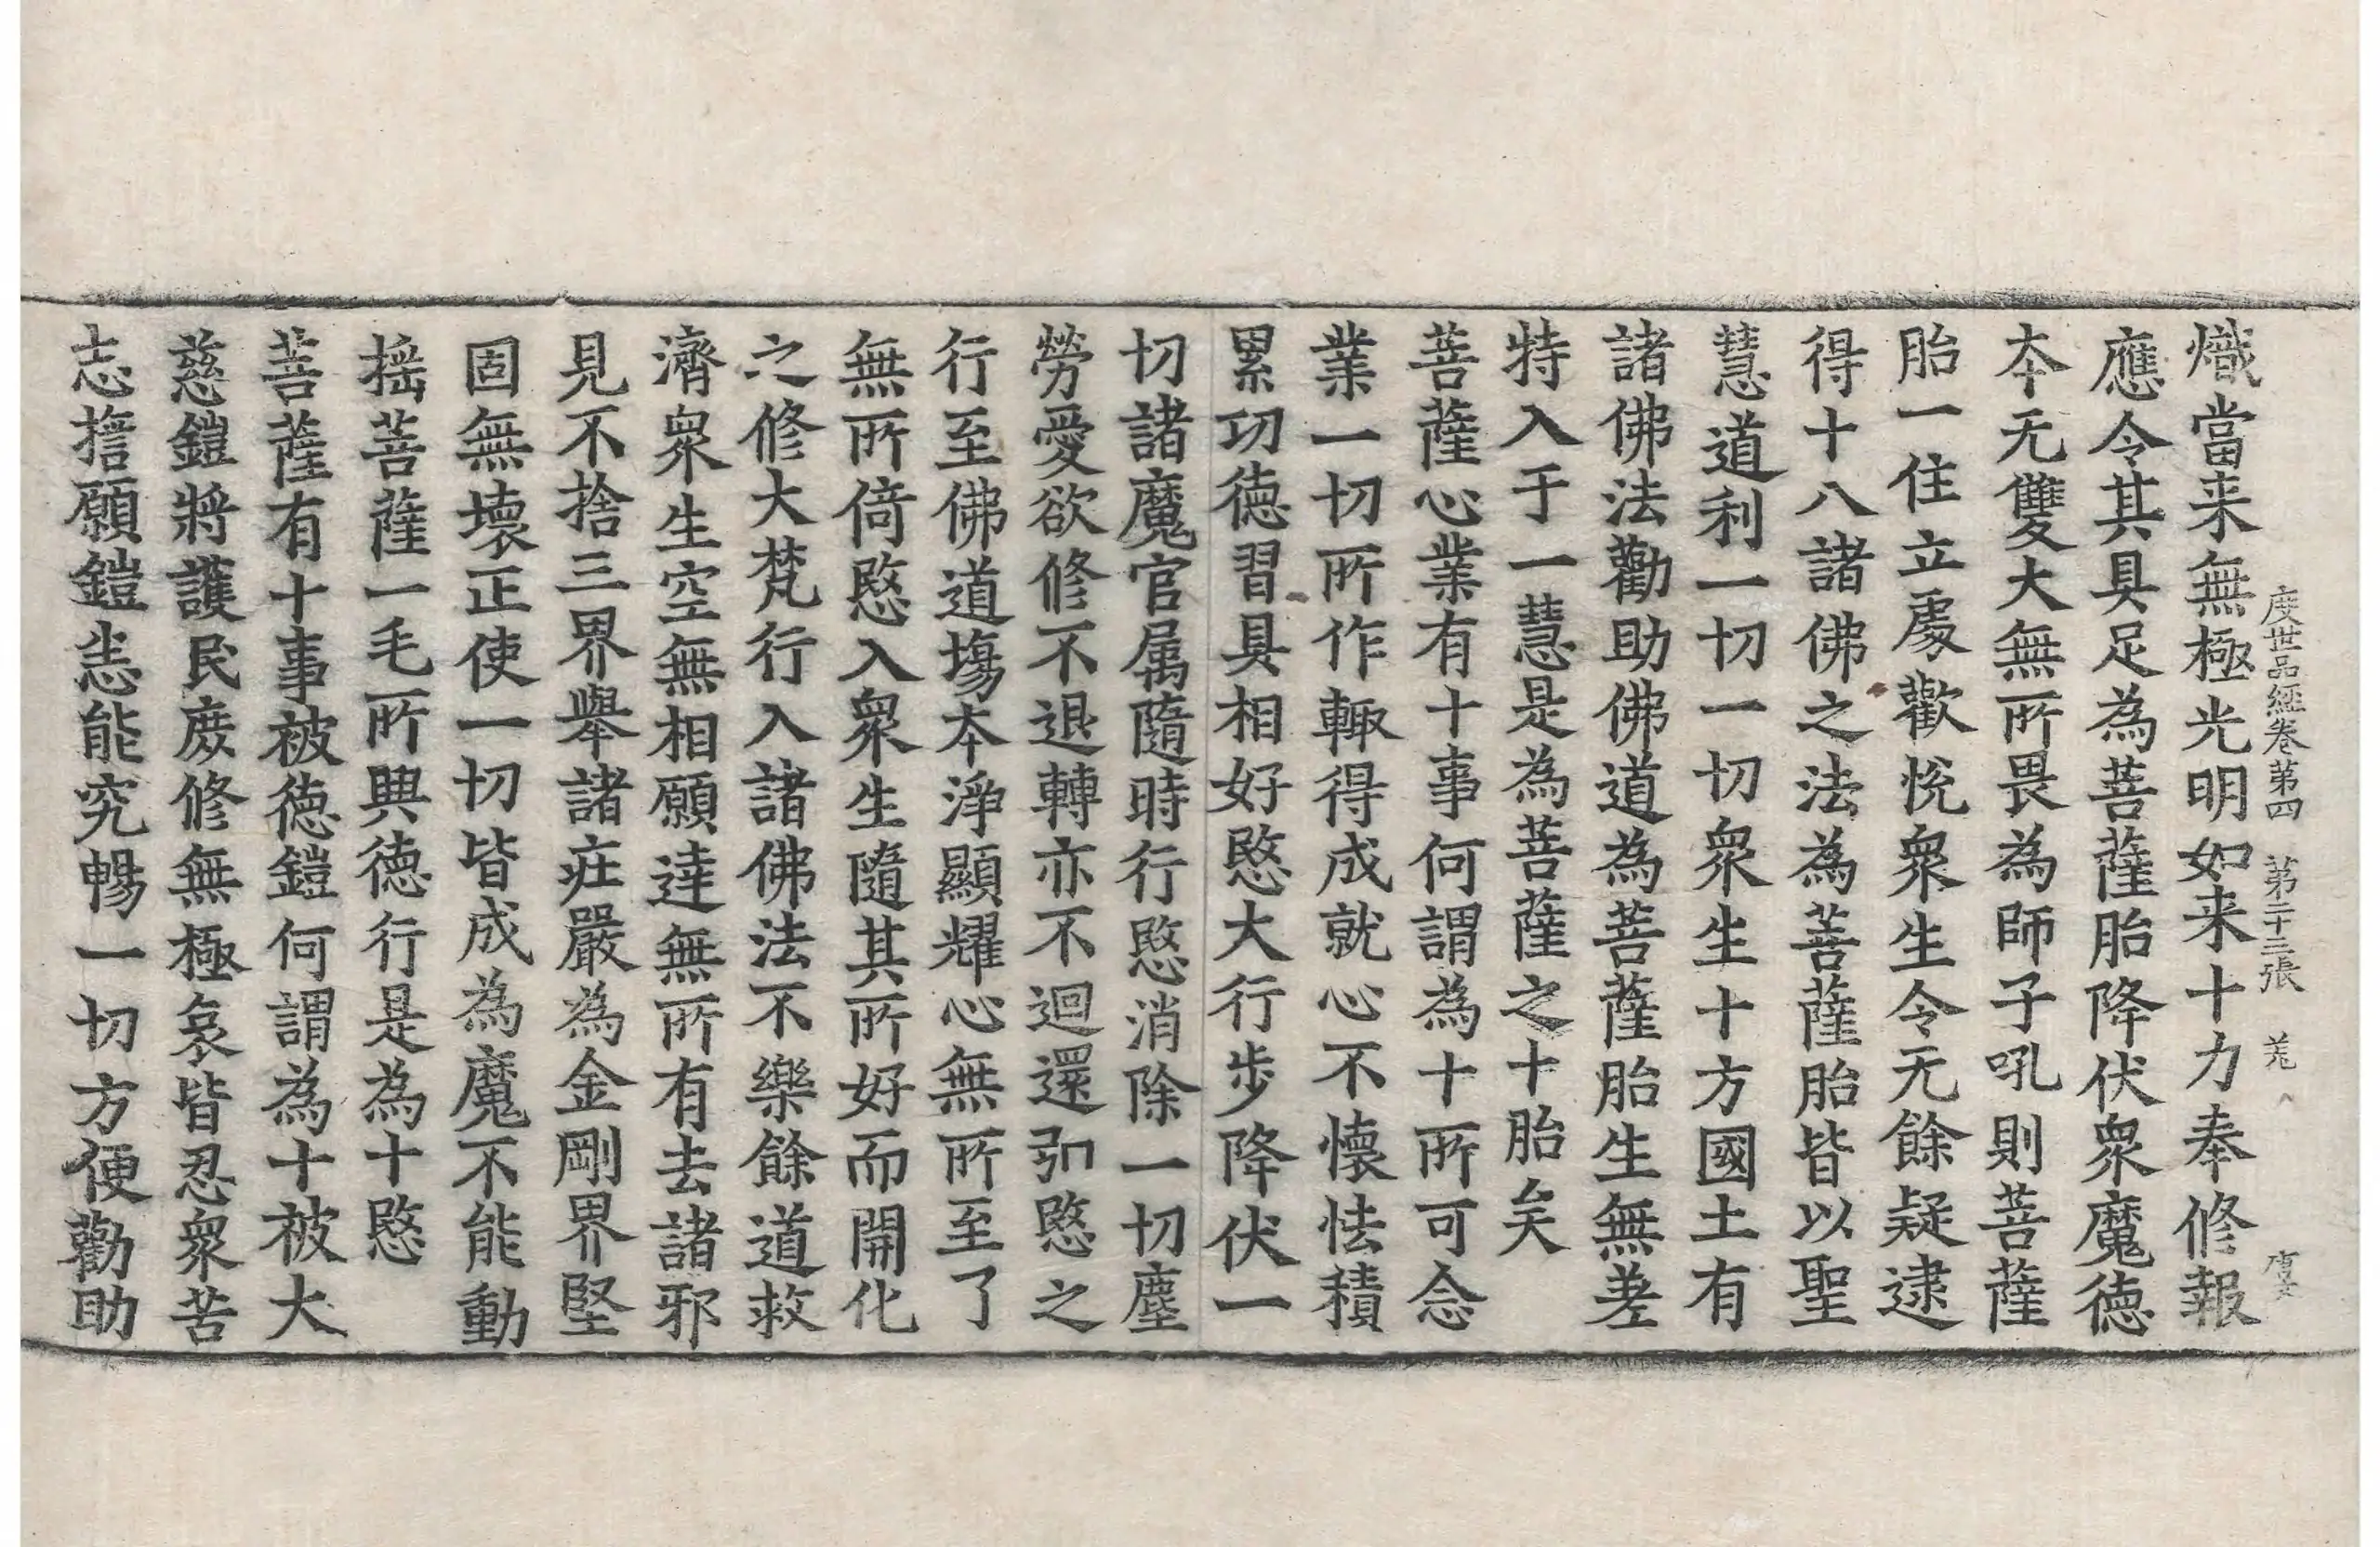 度世品經卷第四 第二十三張 羌
熾當来無極光明如来十力奉修報
應令其具足為菩薩胎降伏衆魔德
本无雙大無所畏為師子吼則菩薩
胎一住立處歡悅衆生令无餘疑逮
得十八諸佛之法為菩薩胎皆以聖
慧道利一切一切衆生十方國土有
諸佛法勸助佛道為菩薩胎生無差
特入于一慧是為菩薩之十胎矣
菩薩心業有十事何謂為十所可念
業一切所作輙得成就心不懷怯積
累功德習具相好愍大行步降伏一
切諸魔官属隨時行愍消除一切塵
勞愛欲修不退轉亦不迴還引愍之
行至佛道塲本淨顯耀心無所至了
無所倚愍入衆生隨其所好而開化
之修大梵行入諸佛法不樂餘道救
濟衆生空無相願達無所有去諸邪
見不捨三界舉諸莊嚴為金剛界堅
固無壞正使一切皆成為魔不能動
揺菩薩一毛所興德行是為十愍
菩薩有十事被德鎧何謂為十被大
慈鎧將護民庶修無極哀皆忍衆苦
志擔願鎧恙能究暢一切方便勸助